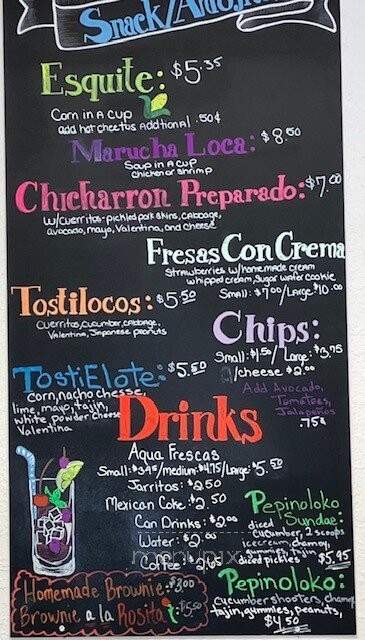 Snack/Antojitos
Esquite: $5.35
Corn in A cup
add hot cheetos Addtional .50¢
Marucha Loca: $8.50
Soup in A cup
chicken or shrimp
Chicharron Preparado: $7.00
w/cueritos-pickled pork skins, cabbage,
avocado, mayo, Valentina, and cheese
Fresas Con Crema
Strawberries w/homemade cream
whipped cream, sugar wafer cookie
Small: $7.00/Large: $10.00
Tostilocos: $5.50
Cueritos, cucumber, cabbage,
Valentina, Japanese peanuts
Chips:
Small: $1.50/Large: $3.75
/cheese $2.00
Add Avocado,
Tomatoes,
Jalapeños
.75¢
TostiElote: $5.50
corn, nacho chesse,
lime, mayo, tajin,
white powder cheese
Valentina
Drinks
Aqua Frescas
Small: $3.95/medium: $4.75/Large: $5.50
Jarritos: $2.50
Mexican Coke: $2.50
Can Drinks: $2.00
Water: $2.00
Coffee: $2.05
Pepinoloko
Sundae:
diced cucumber, 2 scoops
icecream, chamoy,
gummies, tajin
diced pickles $5.95
Homemade Brownie: $3.00
Brownie a la Rosita: $5.50
Pepinoloko:
cucumber shooters, chamoy
tajin, gummies, peanuts,
$4.50